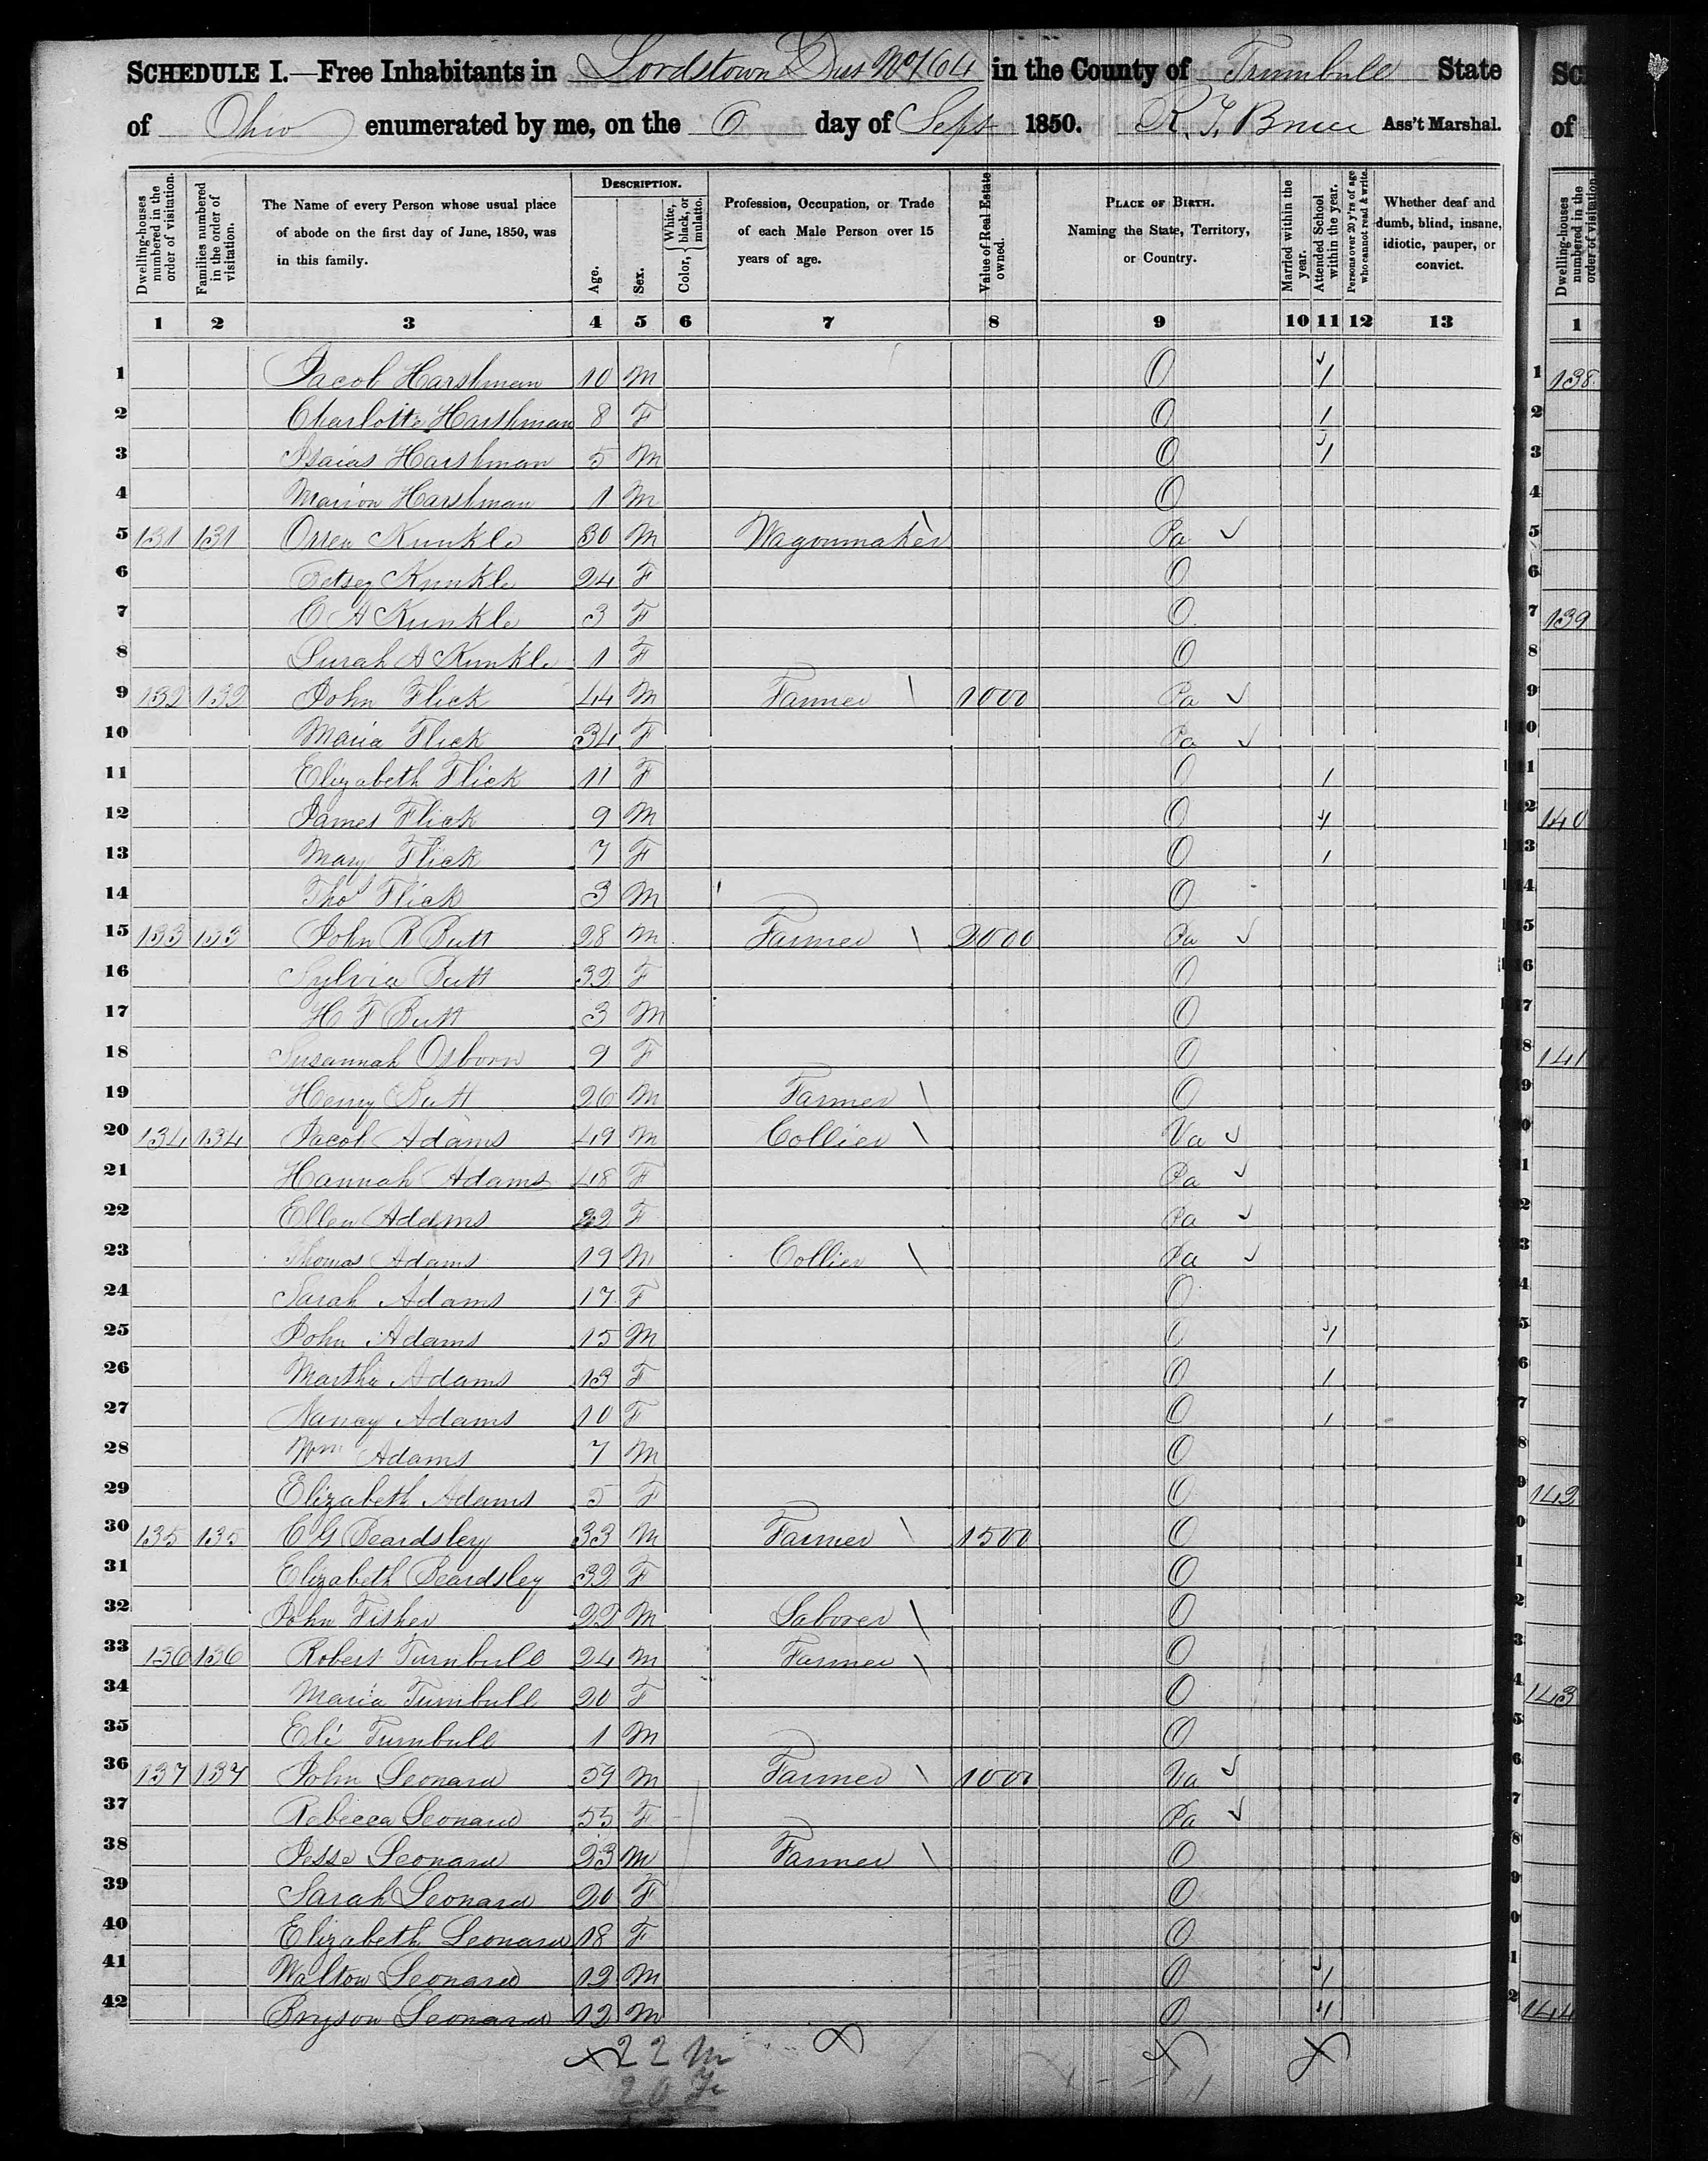 SCHEDULE I.—Free Inhabitants in Lordstown Dis No 164 in the County of Trumbull State
of Ohio enumerated by me, on the 6 day of Sept 1850. Ass't Marshal.
Dwelling-houses numbered in the order of visitation. Families numbered in the order of visitation. The Name of every Person whose usual place of abode on the first day of June, 1850, was in this family. DESCRIPTION. Age. Sex. Color, { White, black, or mulatto. Profession, Occupation, or Trade of each Male Person over 15 years of age. Value of Real Estate owned. PLACE OF BIRTH. Naming the State, Territory, or Country. Married within the year. Attended School within the year. Persons over 20 y'rs of age who cannot read & write. Whether deaf and dumb, blind, insane, idiotic, pauper, or convict.
1 2 3 4 5 6 7 8 9 10 11 12 13
1 Jacob Harshman 10 M O 1
2 Charlotte Harshman 8 F O 1
3 Isaias Harshman 5 M O 1
4 Marion Harshman 1 M O
5 131 131 Orren Kunkle 30 M Wagonmaker Pa
6 Betsey Kunkle 24 F O
7 C A Kunkle 3 F O
8 Surah A Kunkle 1 F O
9 132 132 John Flick 44 M Farmer 1000 Pa
10 Maria Flick 34 F Pa
11 Elizabeth Flick 11 F O 1
12 James Flick 9 M O 1
13 Mary Flick 7 F O 1
14 Thos Flick 3 M O
15 133 133 John R Butt 28 M Farmer 2000 Pa
16 Sylvia Butt 32 F O
17 H F Butt 3 M O
18 Susannah Osborn 9 F O
19 Henry Butt 26 M Farmer O
20 134 134 Jacob Adams 49 M Collier Va
21 Hannah Adams 48 F Pa
22 Ellen Adams 22 F Pa
23 Thomas Adams 19 M Collier Pa
24 Sarah Adams 17 F O
25 John Adams 15 M O 1
26 Martha Adams 13 F O 1
27 Nancy Adams 10 F O 1
28 Wm Adams 7 M O
29 Elizabeth Adams 5 F O
30 135 135 C G Beardsley 33 M Farmer 1500 O
31 Elizabeth Beardsley 32 F O
32 John Fisher 22 M Laborer O
33 136 136 Robert Turnbull 24 M Farmer O
34 Maria Turnbull 20 F O
35 Eli Turnbull 1 M O
36 137 137 John Leonard 59 M Farmer 1000 Va
37 Rebecca Leonard 55 F Pa
38 Jesse Leonard 23 M Farmer O
39 Sarah Leonard 20 F O
40 Elizabeth Leonard 18 F O
41 Walton Leonard 12 M O 1
42 Bryson Leonard 12 M O 1
22 M
20 F
138
139
140
141
142
143
144